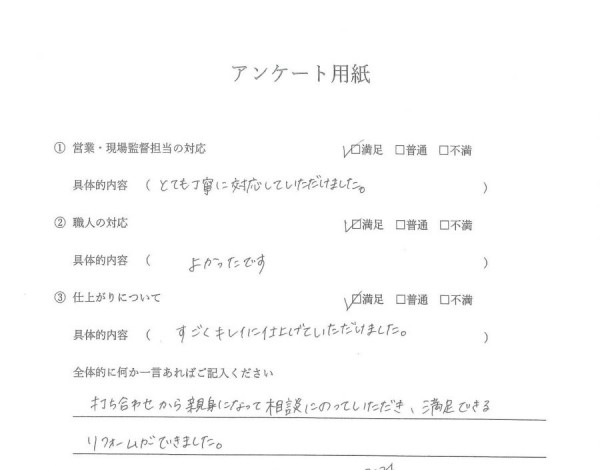 アンケート用紙
① 営業・現場監督担当の対応 ☑満足 □普通 □不満
具体的内容 ( とても丁寧に対応していただけました。 )
② 職人の対応 ☑満足 □普通 □不満
具体的内容 ( よかったです )
③ 仕上がりについて ☑満足 □普通 □不満
具体的内容 ( すごくキレイに仕上げていただけました。 )
全体的に何か一言あればご記入ください
打ち合わせから親身になって相談にのっていただき、満足できる
リフォームができました。